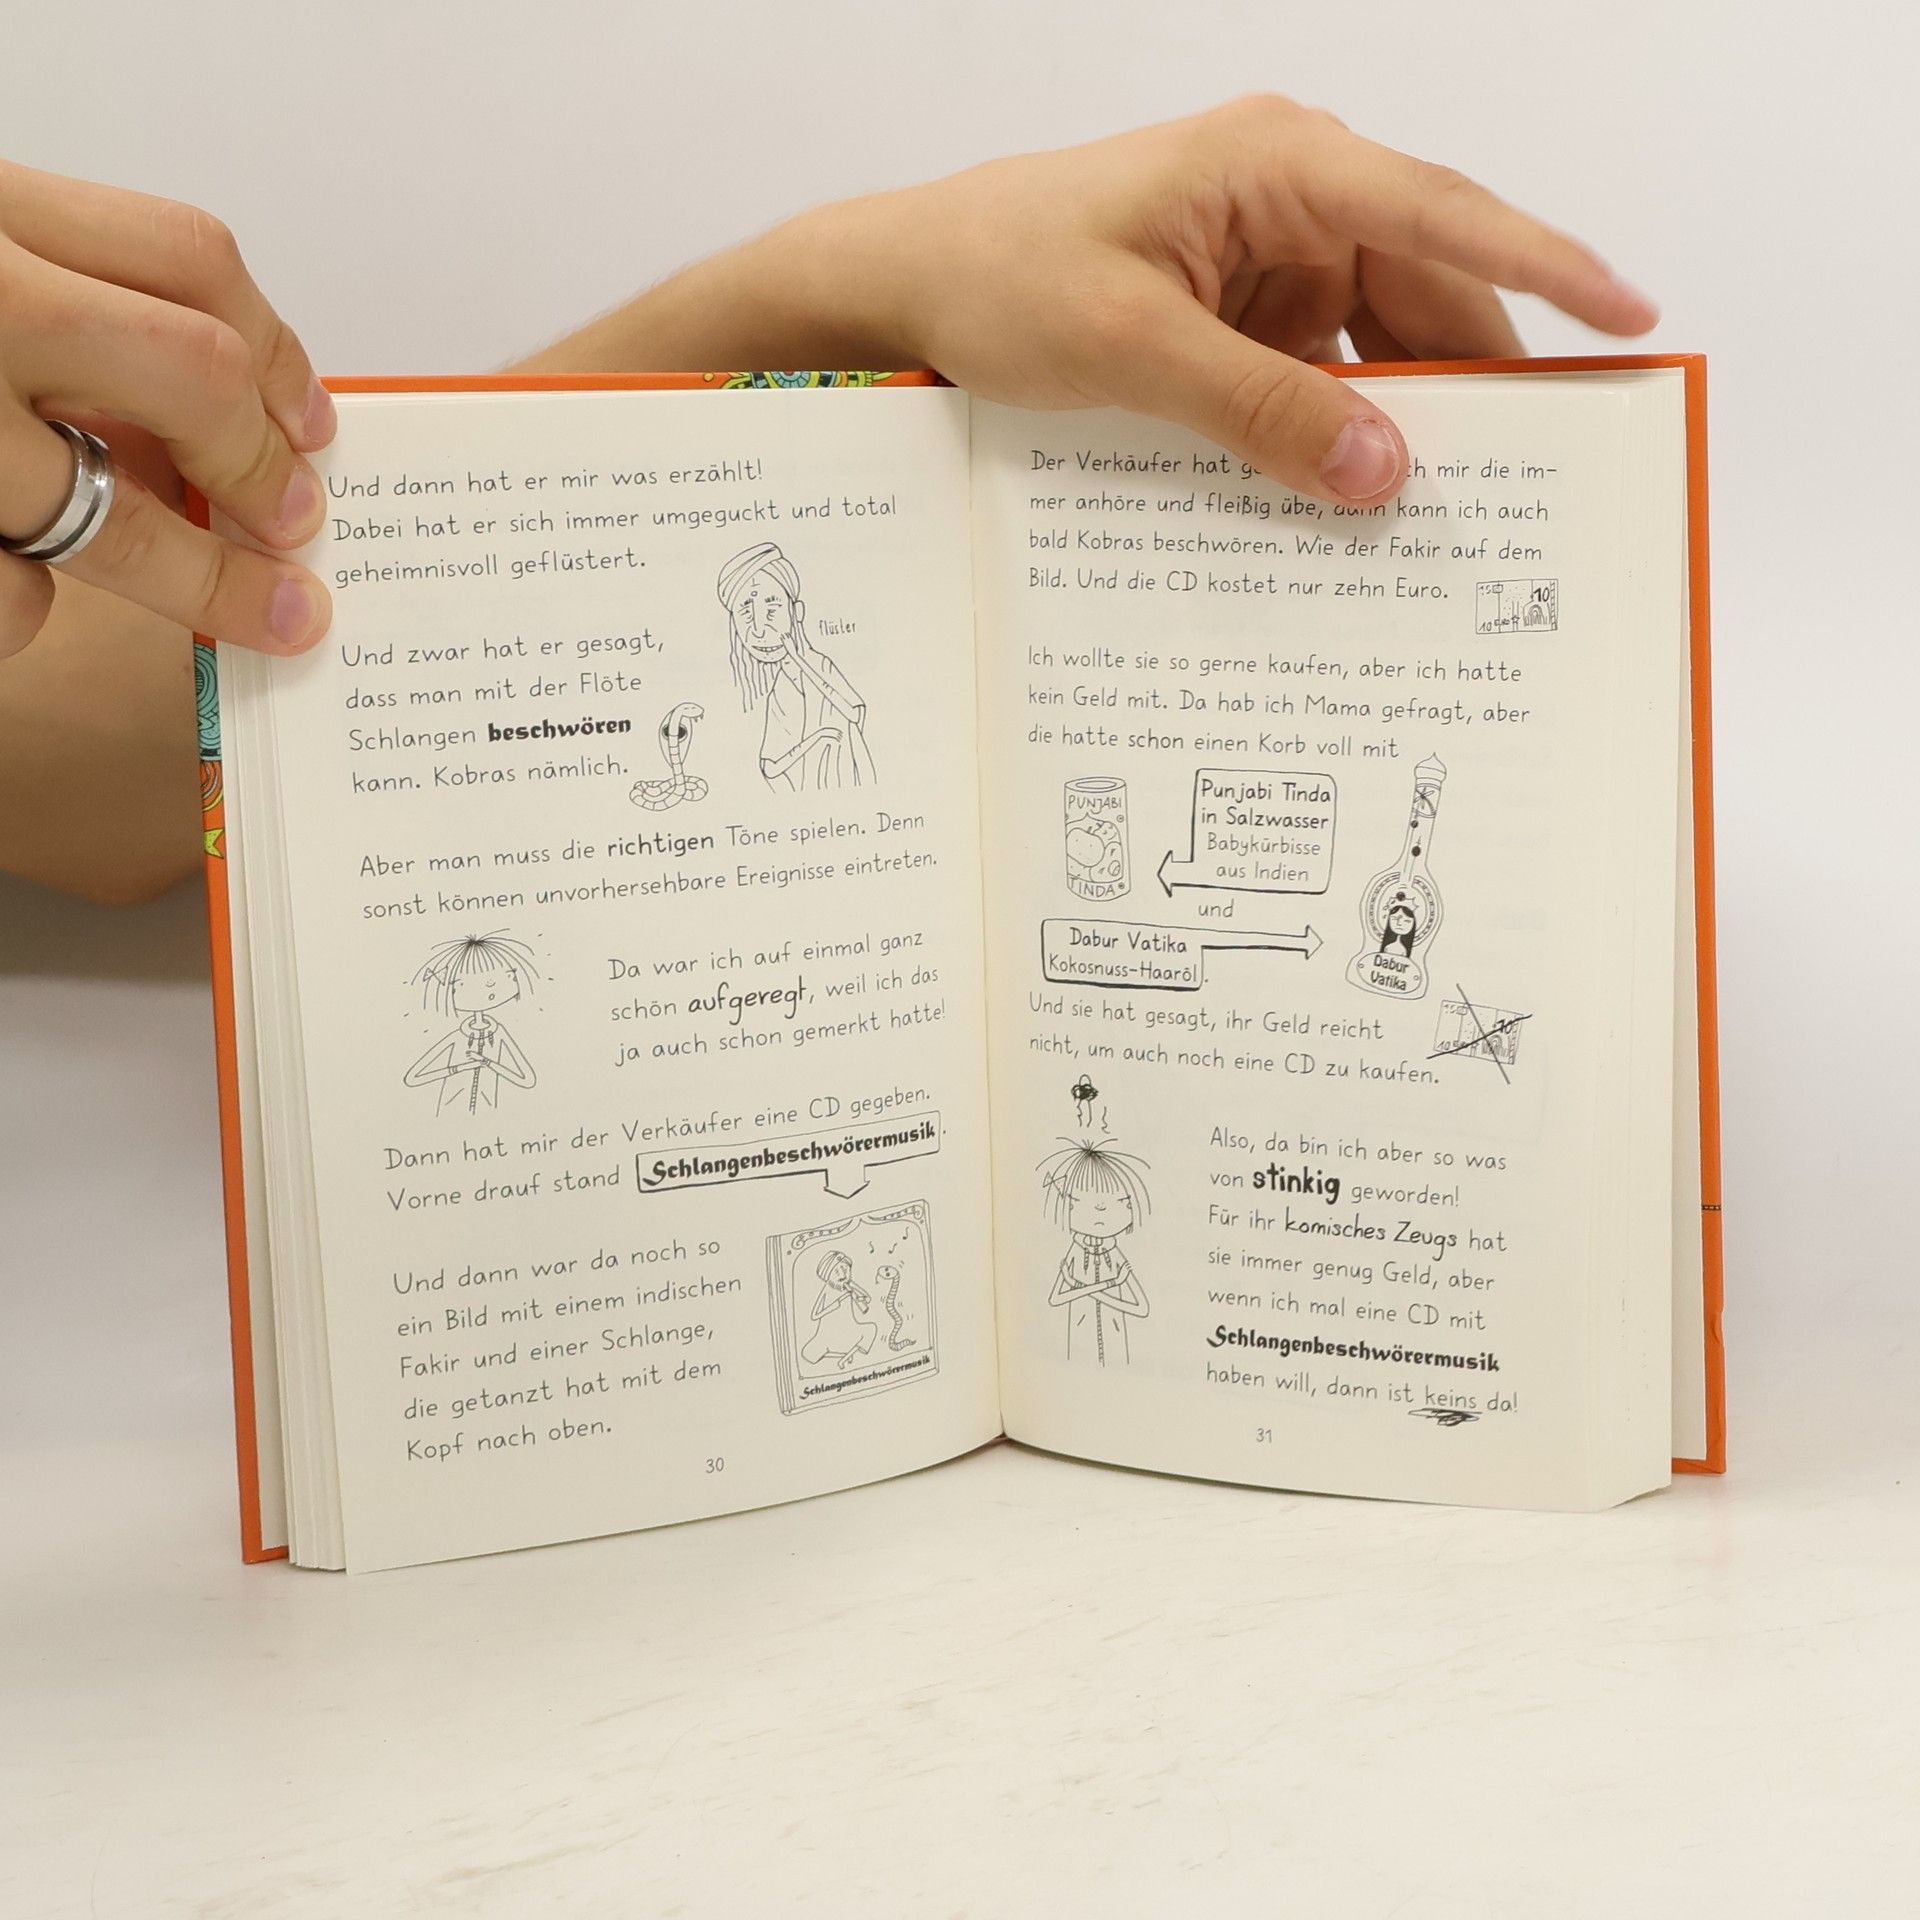 Und dann hat er mir was erzählt!
Dabei hat er sich immer umgeguckt und total
geheimnisvoll geflüstert.
flüster
Und zwar hat er gesagt,
dass man mit der Flöte
Schlangen beschwören
kann. Kobras nämlich.
Aber man muss die richtigen Töne spielen. Denn
sonst können unvorhersehbare Ereignisse eintreten.
Da war ich auf einmal ganz
schön aufgeregt, weil ich das
ja auch schon gemerkt hatte!
Dann hat mir der Verkäufer eine CD gegeben.
Vorne drauf stand Schlangenbeschwörermusik.
Und dann war da noch so
ein Bild mit einem indischen
Fakir und einer Schlange,
die getanzt hat mit dem
Kopf nach oben.
Schlangenbeschwörermusik
30
Der Verkäufer hat mir die im-
mer anhöre und fleißig übe, dann kann ich auch
bald Kobras beschwören. Wie der Fakir auf dem
Bild. Und die CD kostet nur zehn Euro.
10
10 EURO
Ich wollte sie so gerne kaufen, aber ich hatte
kein Geld mit. Da hab ich Mama gefragt, aber
die hatte schon einen Korb voll mit
PUNJABI
TINDA
Punjabi Tinda
in Salzwasser
Babykürbisse
aus Indien
und
Dabur Vatika
Kokosnuss-Haaröl.
Dabur
Vatika
Und sie hat gesagt, ihr Geld reicht
nicht, um auch noch eine CD zu kaufen.
10
10
Also, da bin ich aber so was
von stinkig geworden!
Für ihr komisches Zeugs hat
sie immer genug Geld, aber
wenn ich mal eine CD mit
Schlangenbeschwörermusik
haben will, dann ist keins da!
31